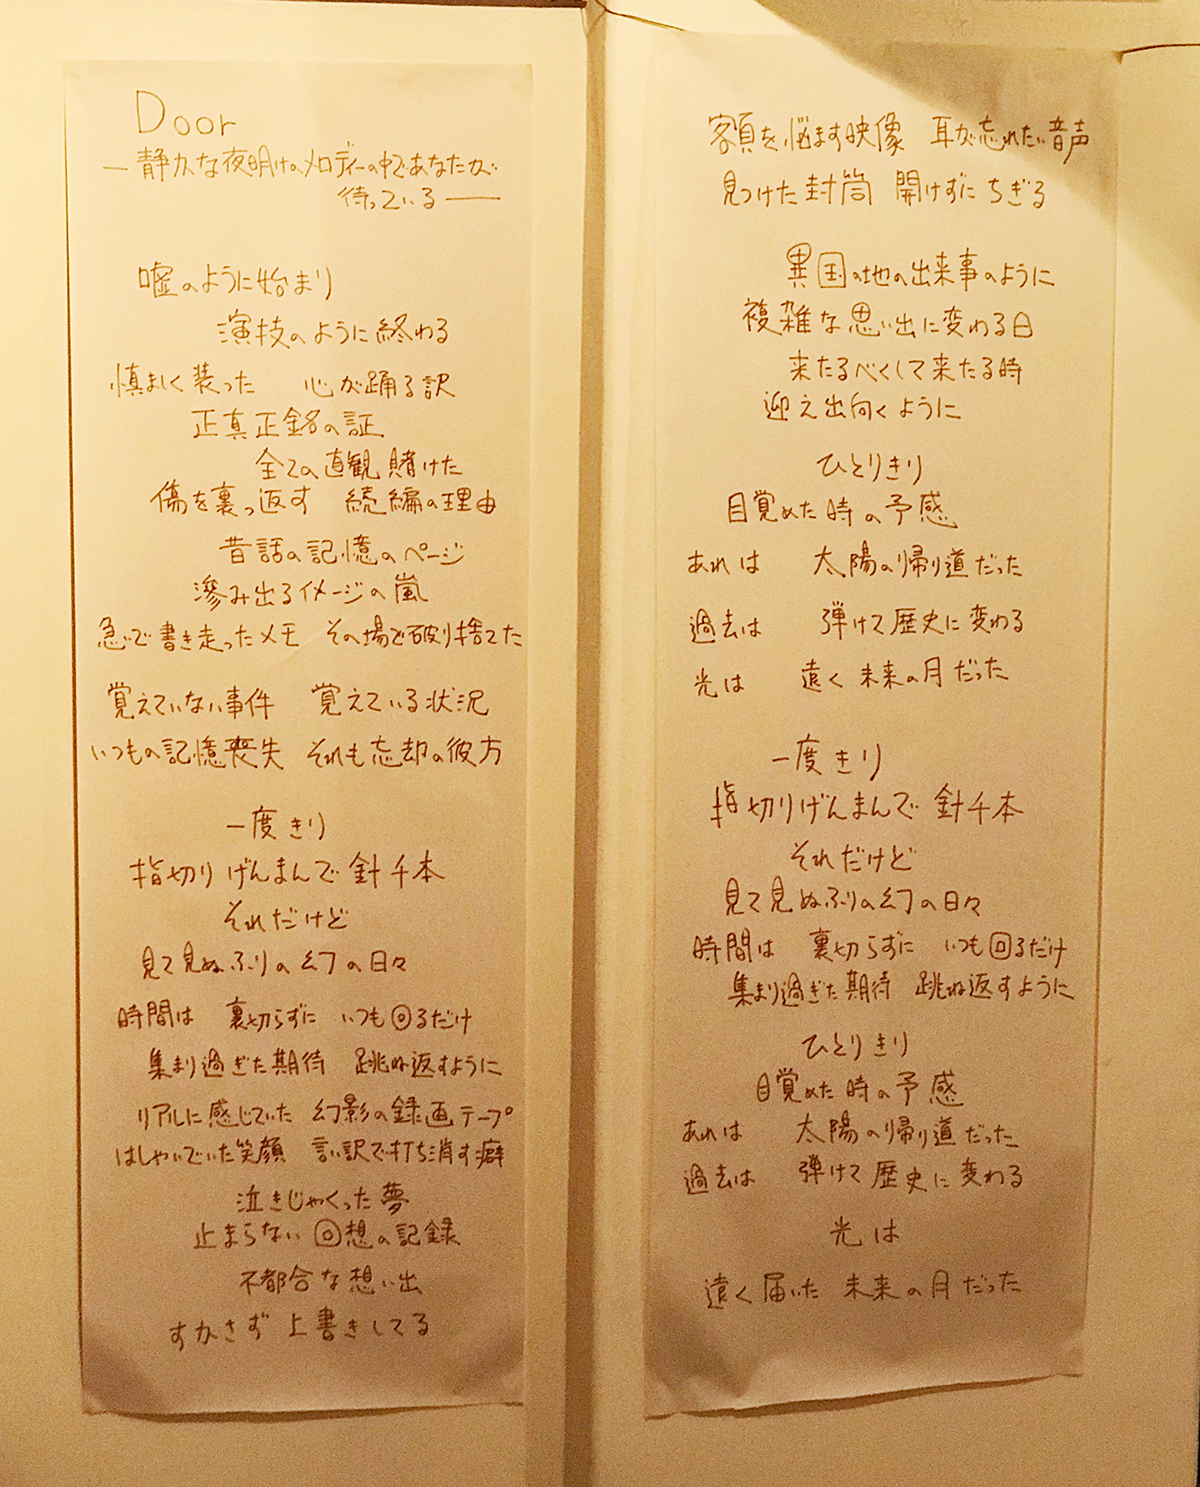 Door
― 静かな夜明けのメロディーの中であなたが
待っている ――
嘘のように始まり
演技のように終わる
慎ましく装った 心が踊る訳
正真正銘の証
全ての直観 賭けた
傷を裏っ返す 続編の理由
昔話の記憶のページ
滲み出るイメージの嵐
急いで書き走ったメモ その場で破り捨てた
覚えていない事件 覚えている状況
いつもの記憶喪失 それも忘却の彼方
一度きり
指切りげんまんで 針千本
それだけど
見て見ぬふりの幻の日々
時間は 裏切らずに いつも回るだけ
集まり過ぎた期待 跳ね返すように
リアルに感じていた 幻影の録画テープ
はしゃいでいた笑顔 言い訳で打ち消す癖
泣きじゃくった夢
止まらない回想の記録
不都合な想い出
すかさず 上書きしてる
額を悩ます映像 耳が忘れたい音声
見つけた封筒 開けずに ちぎる
異国の地の出来事のように
複雑な思い出に変わる日
来たるべくして来たる時
迎え出向くように
ひとりきり
目覚めた時の予感
あれは 太陽の帰り道だった
過去は 弾けて歴史に変わる
光は 遠く 未来の月だった
一度きり
指切りげんまんで 針千本
それだけど
見て見ぬふりの幻の日々
時間は 裏切らずに いつも回るだけ
集まり過ぎた期待 跳ね返すように
ひとりきり
目覚めた時の予感
あれは 太陽の帰り道だった
過去は 弾けて歴史に変わる
光は
遠く届いた 未来の月だった